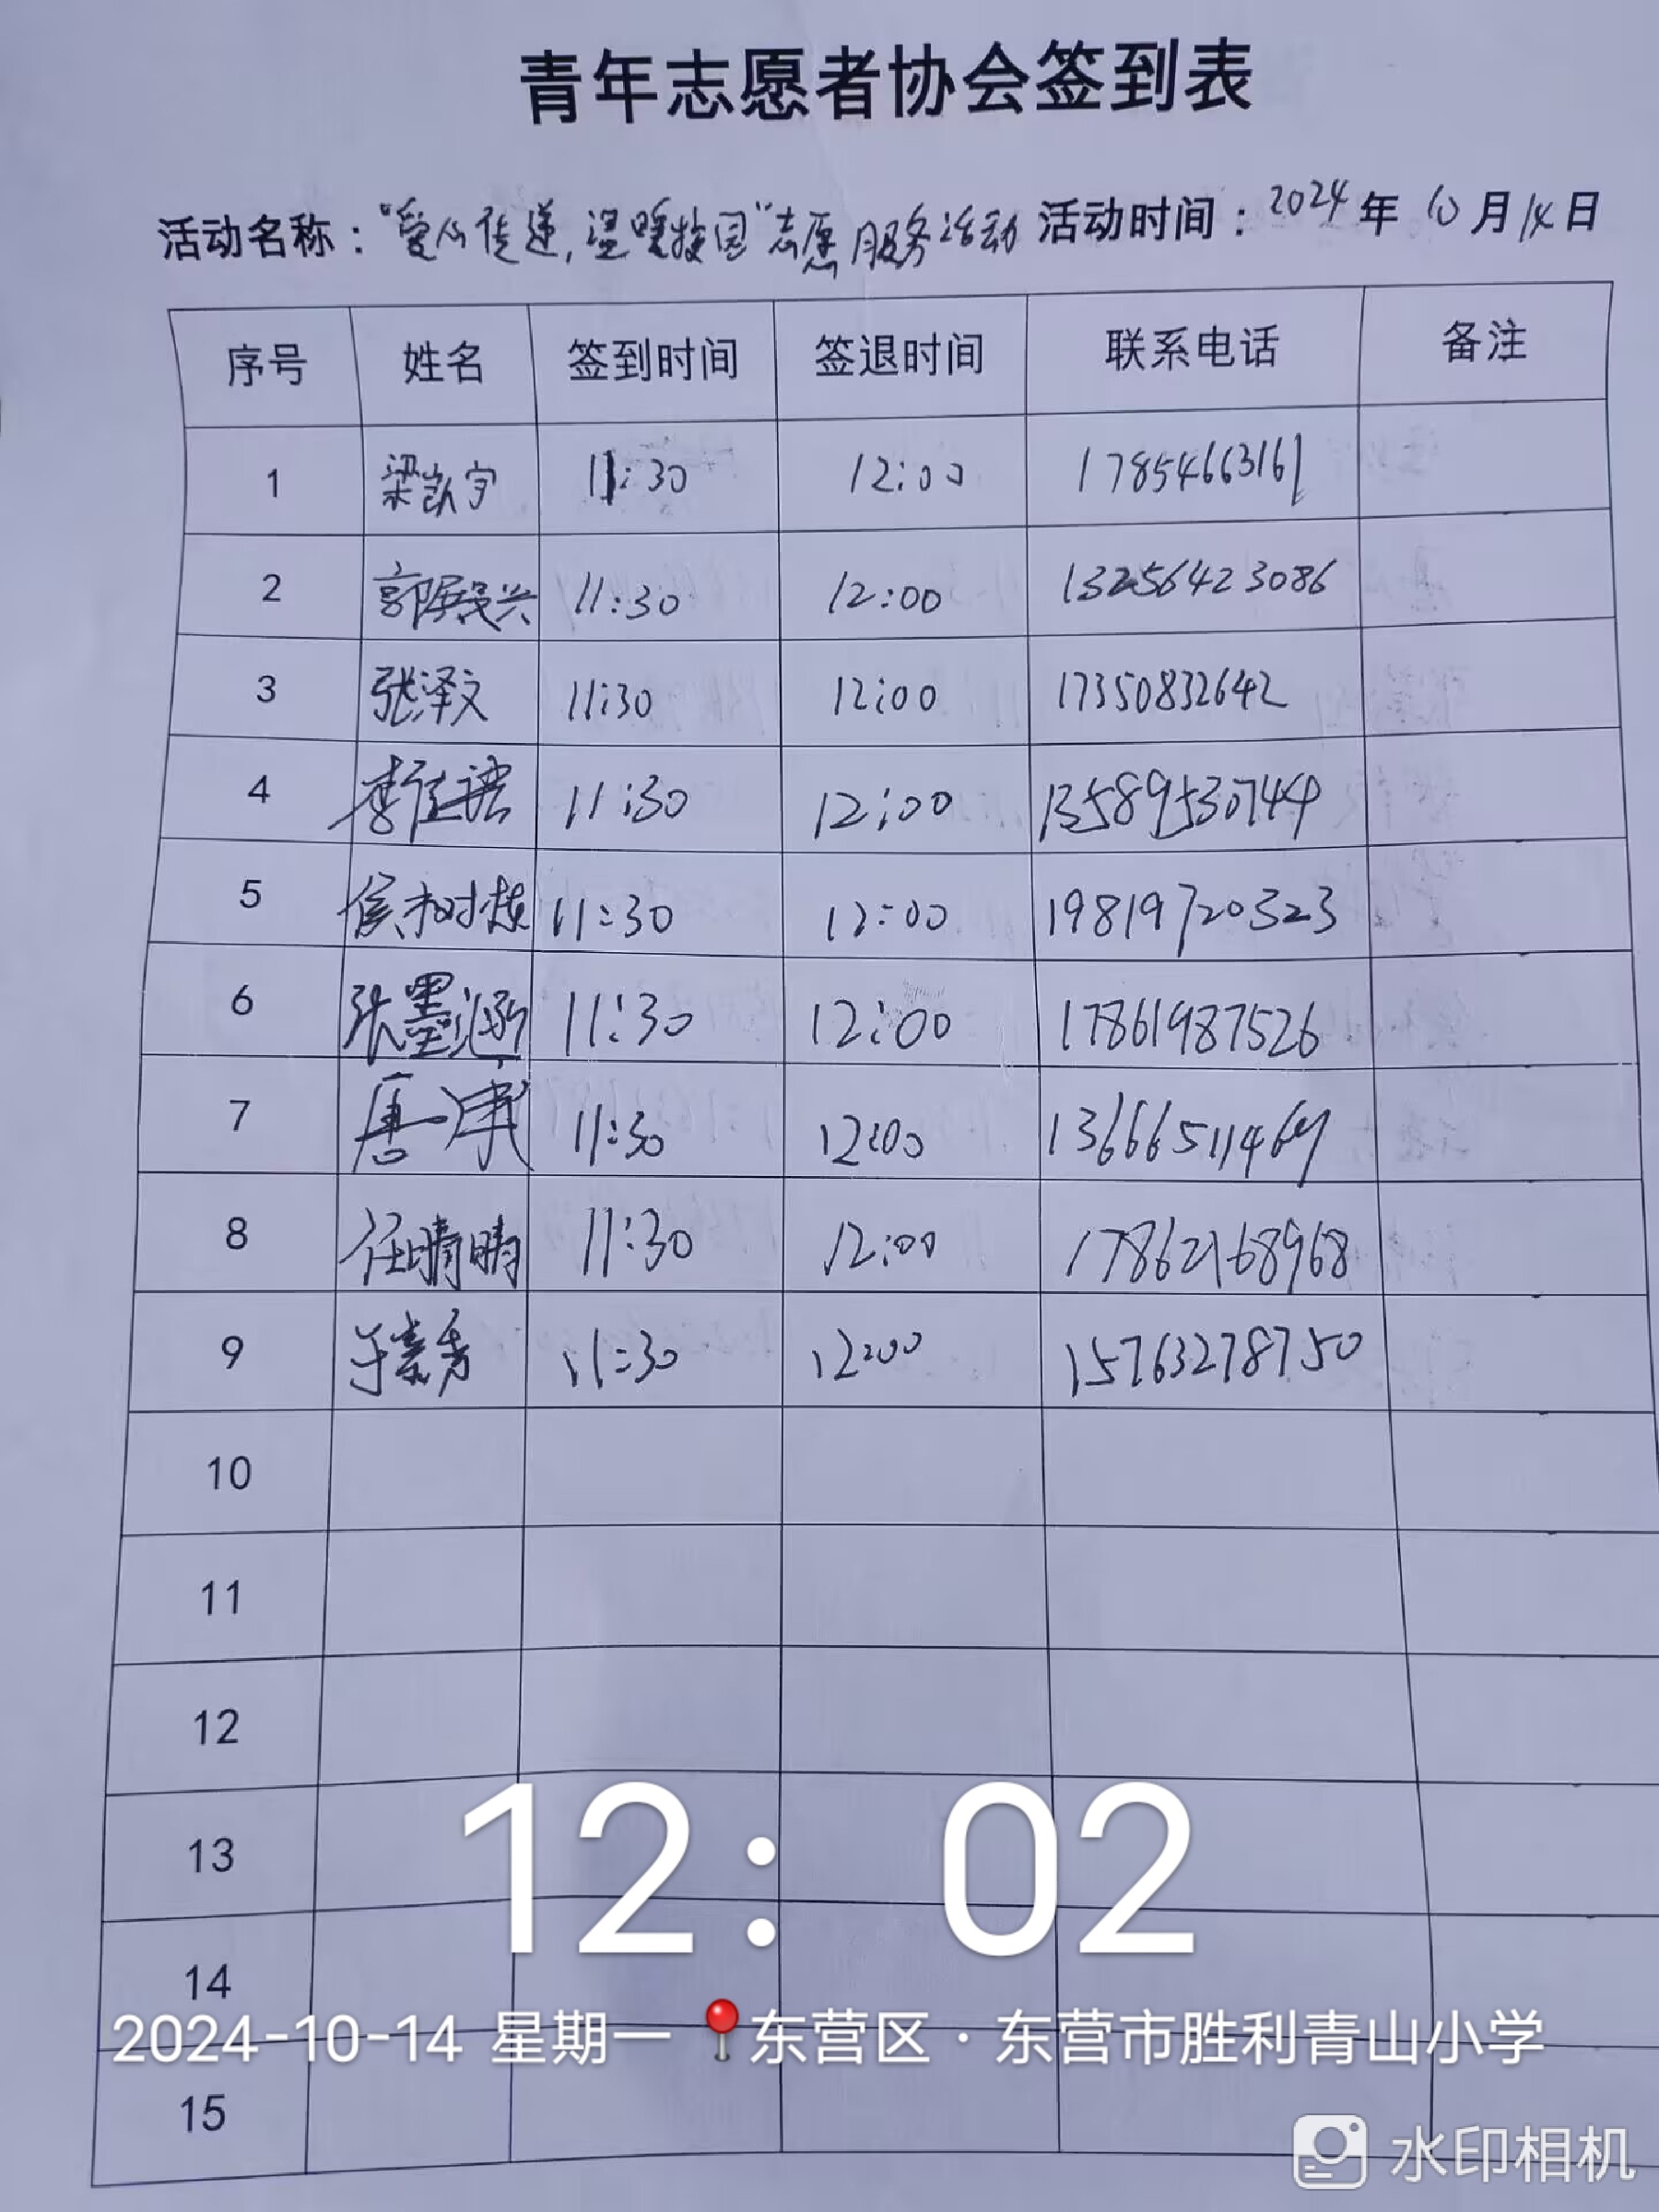 青年志愿者协会签到表
活动名称：“爱心传递,温暖校园”志愿服务活动 活动时间：2024年10月14日
序号 姓名 签到时间 签退时间 联系电话 备注
1 梁凯宇 11:30 12:00 17854663161
2 郭展兴 11:30 12:00 13256423086
3 张泽文 11:30 12:00 17350832642
4 李佳诺 11:30 12:00 13589530744
5 侯树 11:30 12:00 19819720323
6 张墨涵 11:30 12:00 17861987526
7 唐 11:30 12:00 13666511469
8 任晴晴 11:30 12:00 17862168968
9 于秀 11:30 12:00 15763278750
10
11
12
13
12:02
14
2024-10-14 星期一 东营区·东营市胜利青山小学
15
水印相机